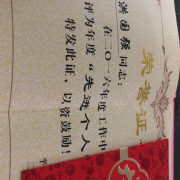 荣誉证
洪国强同志：
在二〇一六年度工作中
评为年度“先进个人
特发此证，以资鼓励！